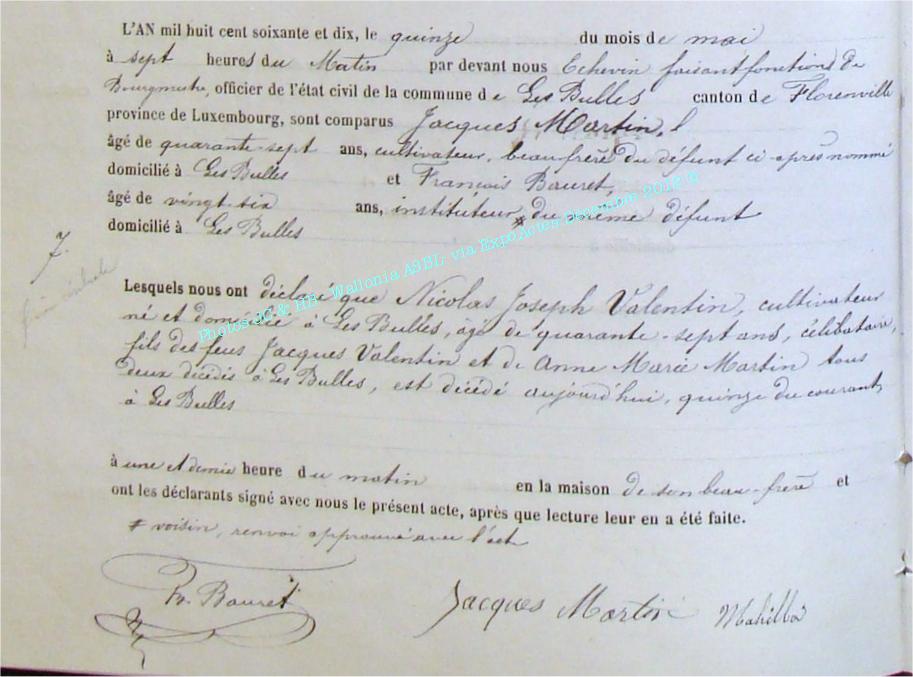 L'AN mil huit cent soixante et dix, le quinze du mois de mai
à sept heures du Matin par devant nous Echevin faisant fonctions de
Bourgmestre, officier de l'état civil de la commune de Les Bulles canton de Florenville
province de Luxembourg, sont comparus Jacques Martin,
âgé de quarante-sept ans, cultivateur, beau frère du défunt ci-après nommé
domicilié à Les Bulles et François Bauret,
âgé de vingt six ans, instituteur, # du même défunt
domicilié à Les Bulles
7.
Lesquels nous ont déclaré que Nicolas Joseph Valentin, cultivateur
né et domicilié à Les Bulles, âgé de quarante-sept ans, célibataire,
fils des feus Jacques Valentin et de Anne Marie Martin tous
deux décédés à Les Bulles, est décédé aujourd'hui, quinze du courant,
à Les Bulles
à une et demie heure du matin en la maison de son beau-frère et
ont les déclarants signé avec nous le présent acte, après que lecture leur en a été faite.
# voisin, renvoi approuvé avec l'acte
Fr. Bauret Jacques Martin
Photos JC & HB - Wallonia ASBL, via ExpoActes Décembre 2012 ©